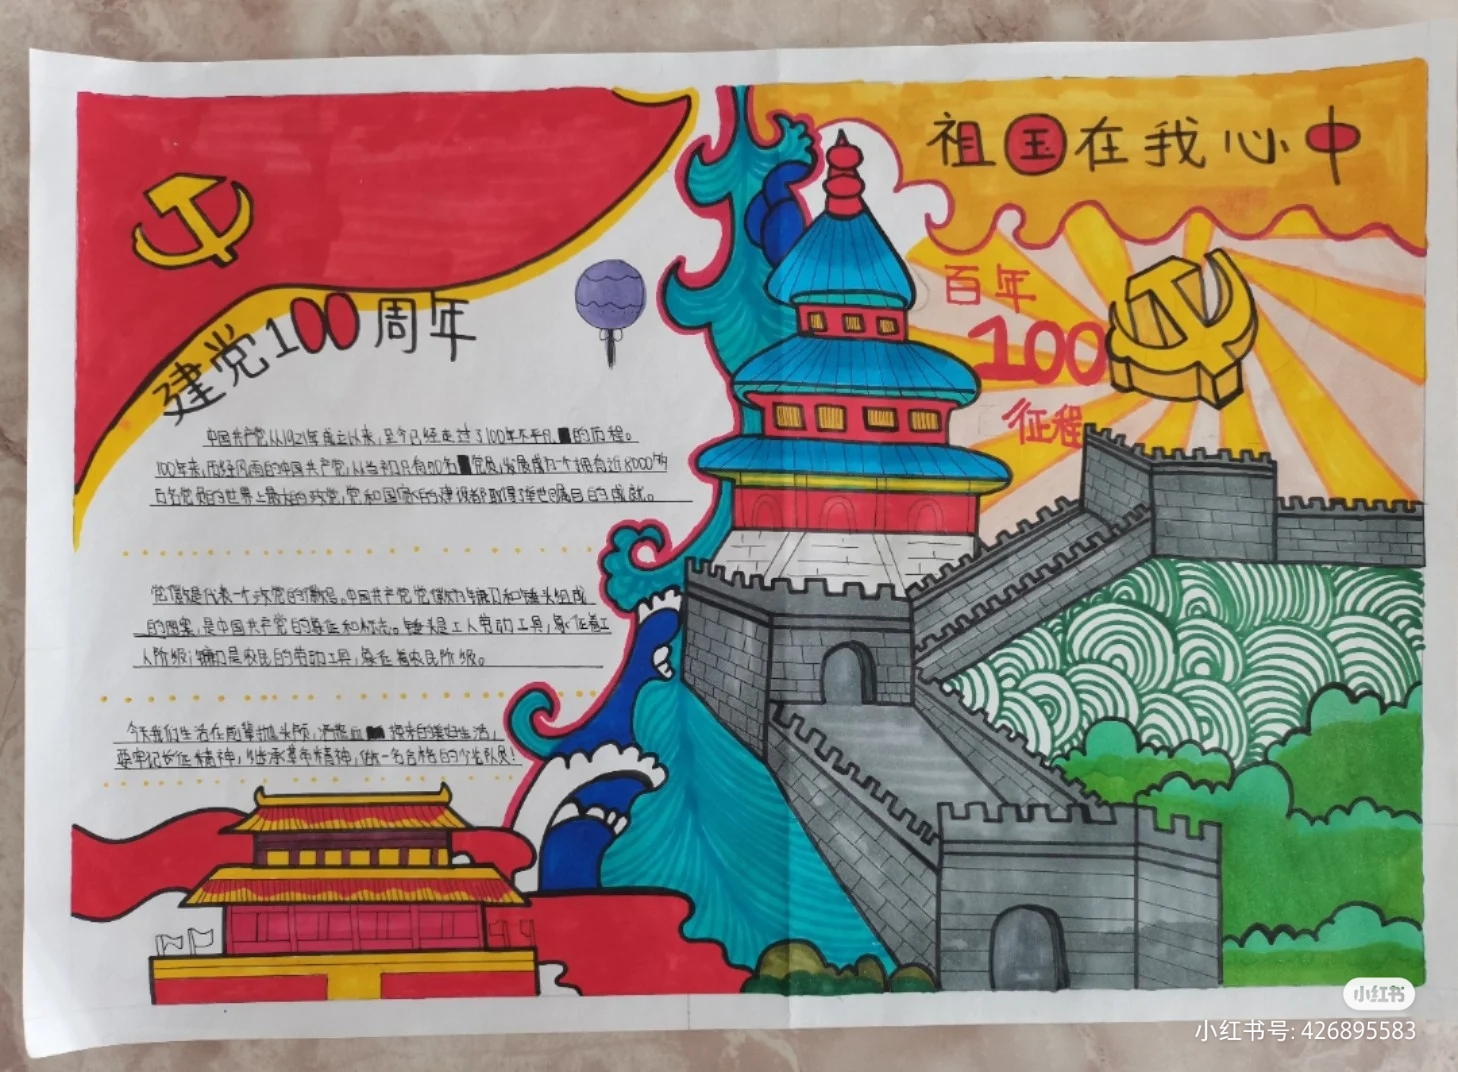 祖国在我心中
建党100周年
百年
100
征程
中国共产党从1921年成立以来,至今已经走过了100年不平凡的历程。
100年来,历经风雨的中国共产党,从当初只有50名党员,发展成为一个拥有近8000多
万名党员的世界上最大的政党,党和国家的建设都取得了举世瞩目的成就。
党徽是代表一个政党的徽号。中国共产党党徽为镰刀和锤头组成
的图案,是中国共产党的象征和标志。锤头是工人劳动工具,象征着工
人阶级;镰刀是农民的劳动工具,象征着农民阶级。
今天我们生活在前辈抛头颅,洒热血换来的美好生活,
要牢记长征精神,继承革命精神,做一名合格的少先队员!
小红书
小红书号: 426895583